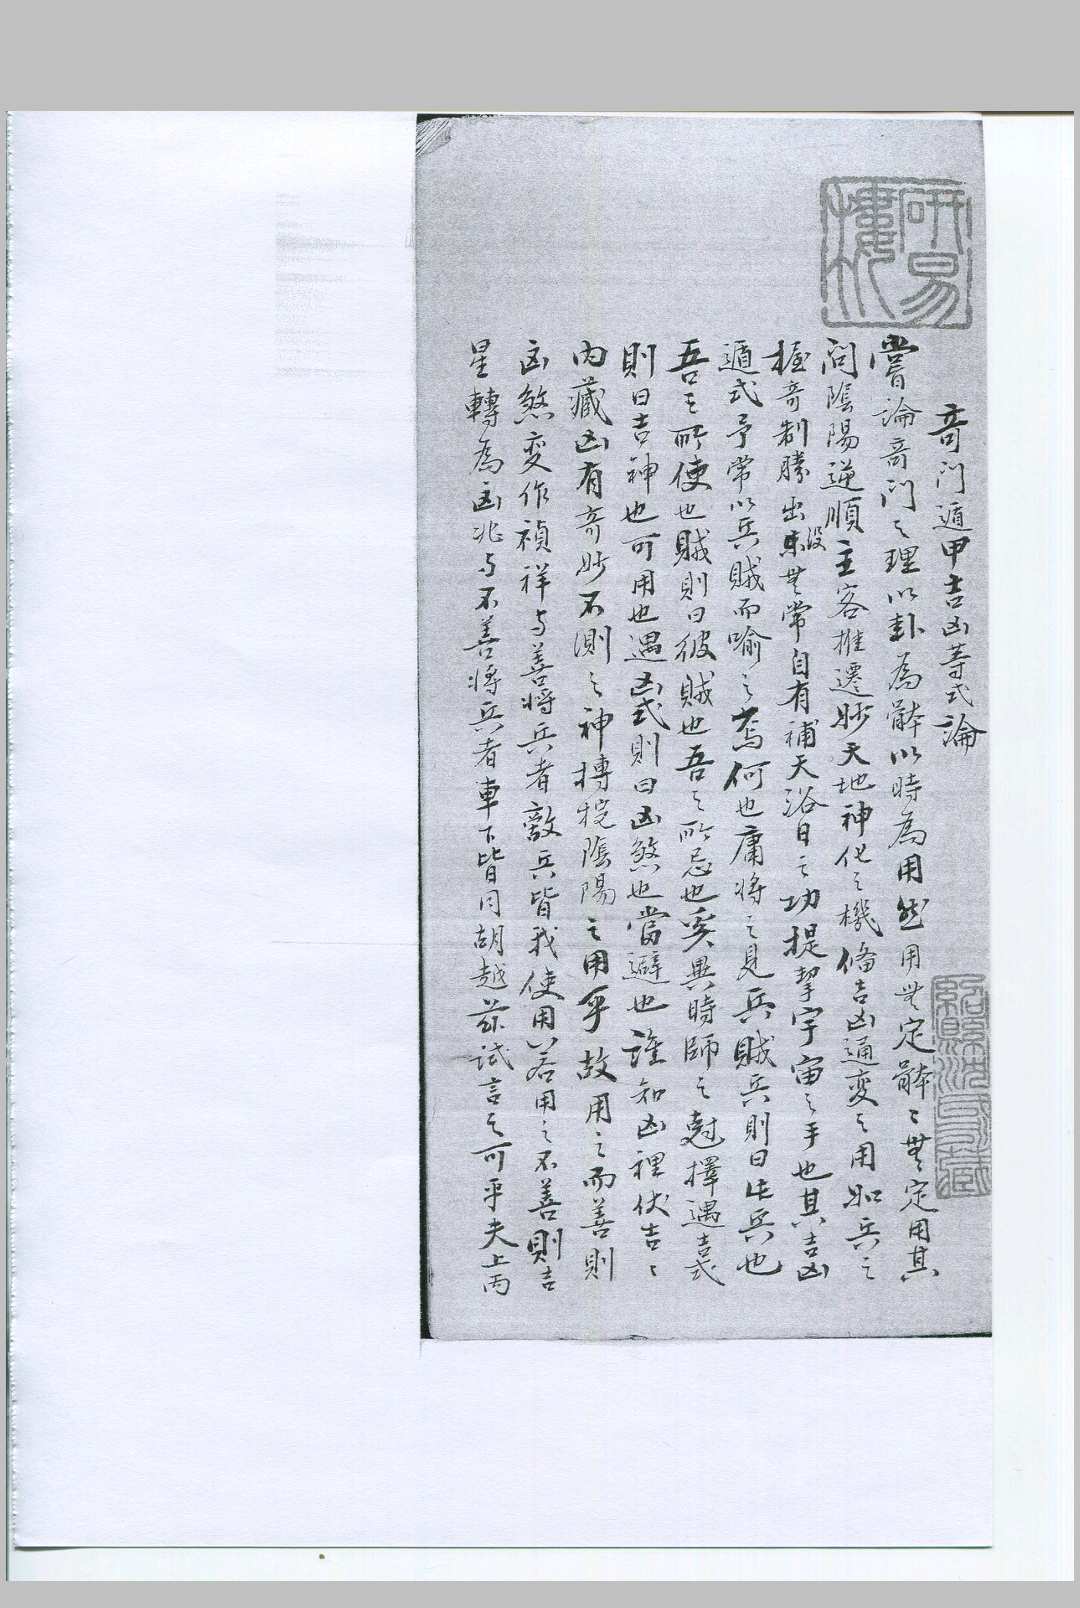 奇門遁甲吉凶等式論
嘗論奇門之理以卦為體以時為用然用無定體〻無定用其
間陰陽逆順主客推遷妙天地神化之機俻吉凶通變之用如兵之
握奇制勝出没無常自有補天浴日之功提挈宇宙之手也其吉凶
遁式予常以兵賊而喻之焉何也庸將之見兵賊兵則曰此兵也
吾之所使也賊則曰彼賊也吾之所忌也奚異時師之尅擇遇吉式
則曰吉神也可用也遇凶式則曰凶煞也當避也誰知凶裡伏吉〻
內藏凶有奇妙不測之神摶捖陰陽之用乎故用之而善則
凶煞變作禎祥與善將兵者敵兵皆我使用若用之不善則吉
星轉為凶兆與不善將兵者車下皆同胡越茲試言之可乎夫上丙
研易樓